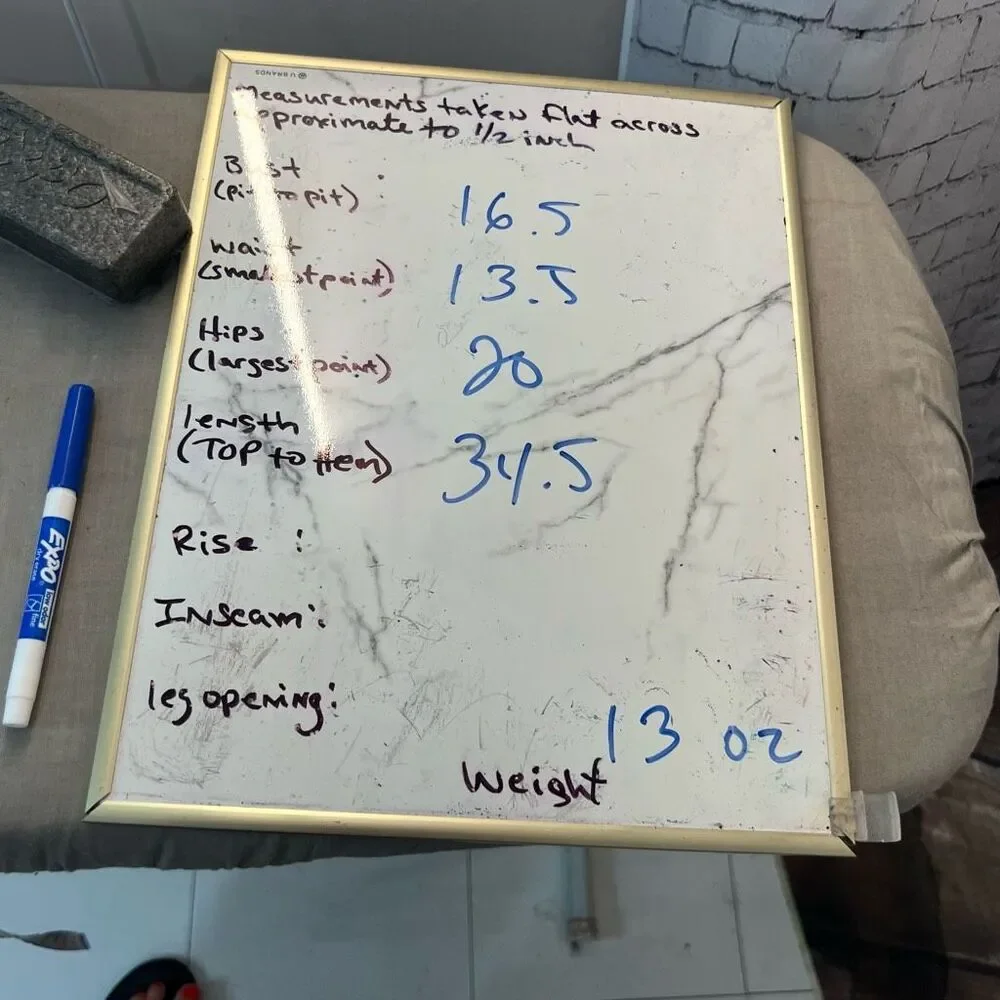 U BRANDS
Measurements taken flat across
approximate to 1/2 inch
Bust :
(pit to pit) : 16.5
waist
(smallest point) 13.5
Hips
(largest point) 20
length
(TOP to Hem) 34.5
Rise :
Inseam:
leg opening:
13 oz
Weight
EXPO
dry erase
low odor
fine